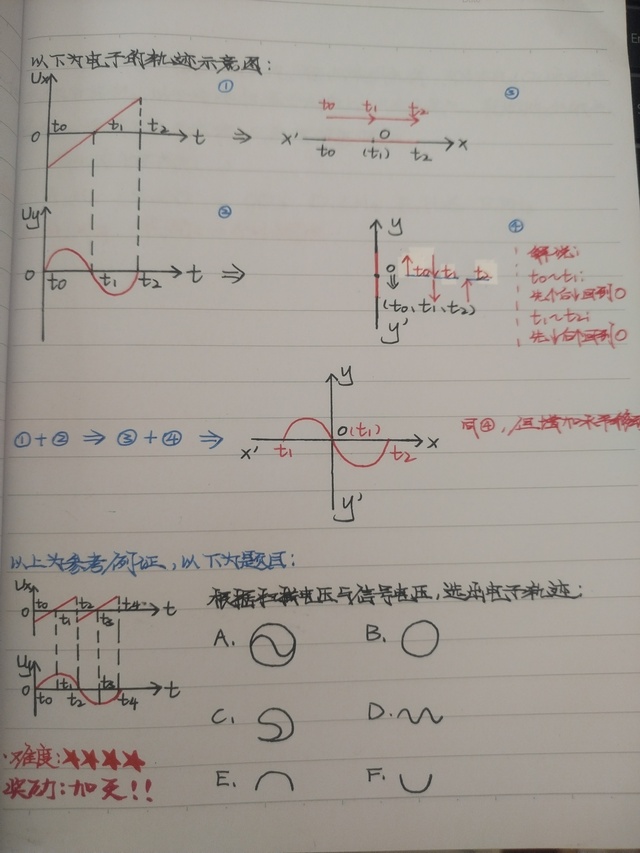 以下为电子的轨迹示意图:
Ux ① ③
t0 t1 t2 t ⇒ t0 t1 t2
0 x' 0 x
t0 (t1) t2
Uy ② y ④
0 t0 t1 t2 t ⇒ 0 t0 t1 t2
(t0, t1, t2)
y'
解说:
t0~t1:
先个后↓回到0
t1~t2:
先↓后个回到0
y
①+② ⇒ ③+④ ⇒ 0(t1) x 同④,但增加水平移动
x' t1 t2
y'
以上为参考例证,以下为题目:
Ux t0 t2 t4 t
0 t1 t3
根据扫描电压与信号电压,选出电子轨迹:
A. B.
Uy
0 t0 t1 t2 t3 t4 t
C. D.
难度:★★★★
奖励:加天!!
E. F.